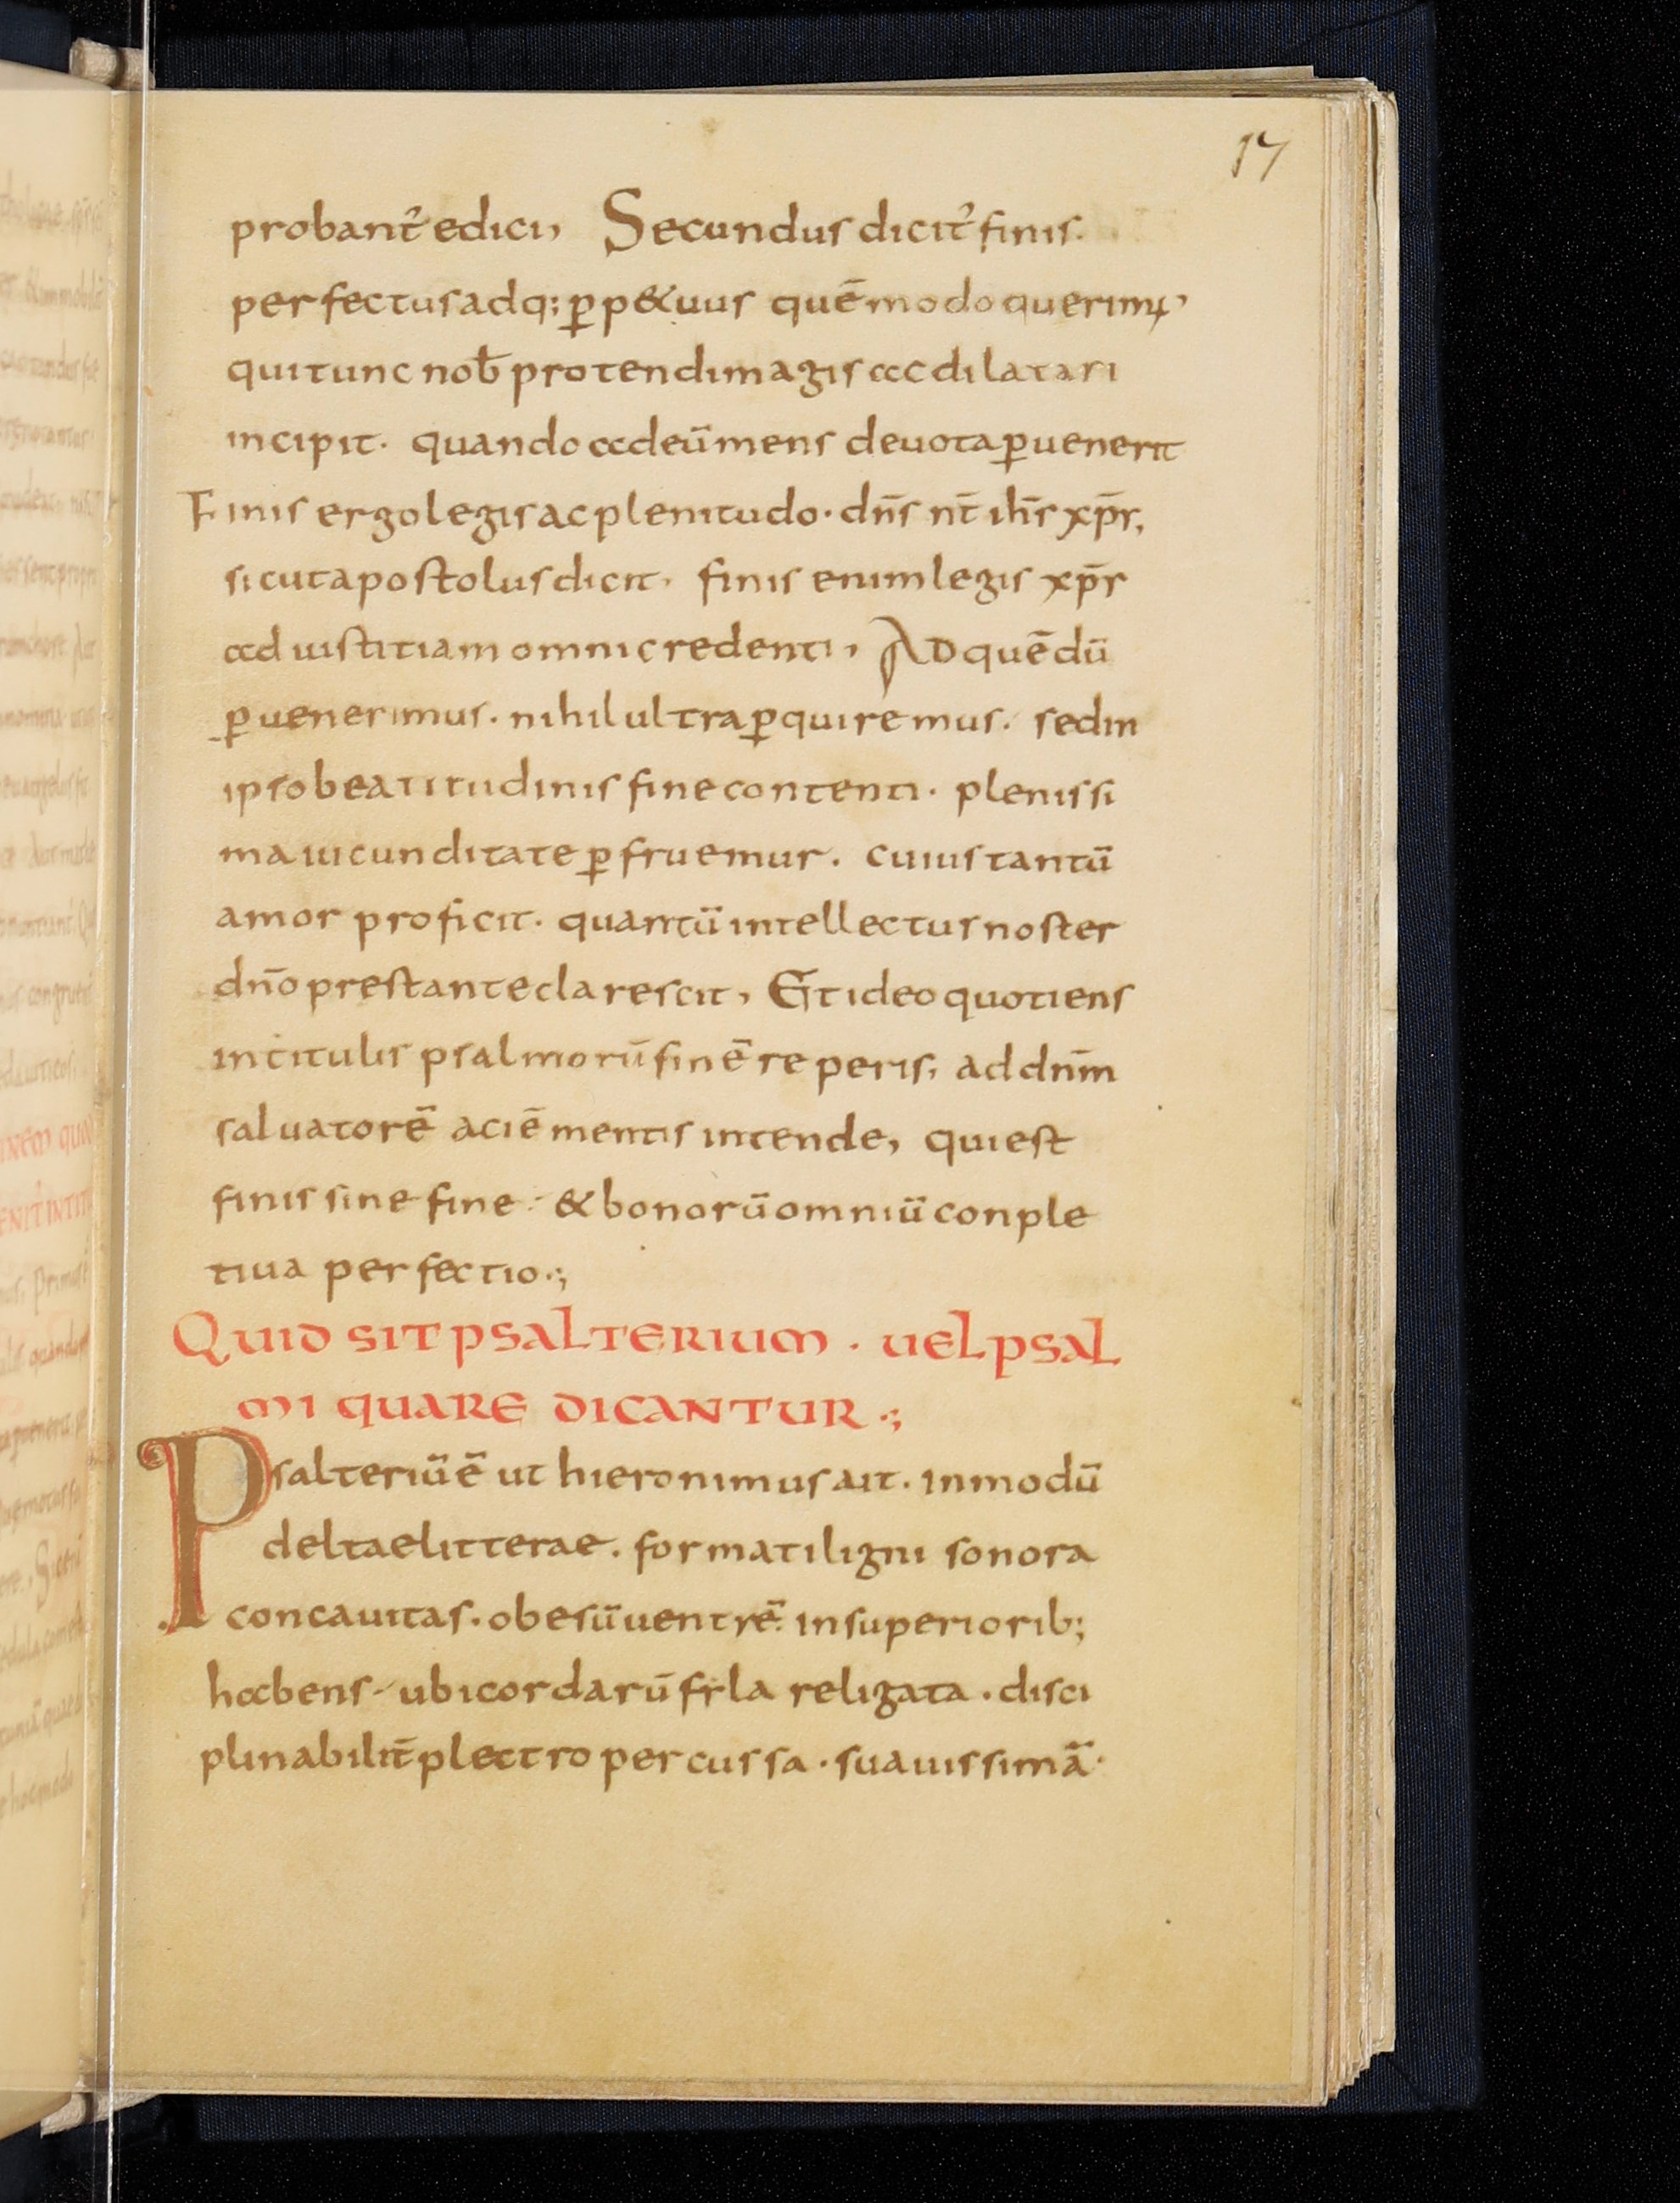 17
probant᷑ edici, Secundus dicit᷑ finis.
perfectus adq; p̱p&uus quē modo querim;,
qui tunc nob̄ protendi magis ac dilatari
incipit. quando ad deū mens deuota p̱uenerit
Finis ergo legis ac plenitudo. dn̄s nt̄ ih̄s xp̄s,
sicut apostolus dicit. finis enim legis xp̄s
ad iustitiam omni credenti, Ad quē dū
p̱uenerimus. nihil ultra p̱quiremus. sed in
ipso beatitudinis fine contenti. plenissi
ma iucunditate p̱fruemur. cuius tantū
amor proficit. quantū intellectus noster
dn̄o prestante clarescit, Et ideo quotiens
in titulis psalmorū finē reperis, ad dnm̄
saluatorē aciē mentis intende, qui est
finis sine fine. & bonorū omniū conple
tiua perfectio.;
Quid sit psalterium. uel psal
mi quare dicantur.;
Psalteriū ē ut hieronimus ait. in modū
deltae litterae. formati ligni sonora
concauitas. obesū uentrē. in superiorib;
habens. ubi cordarū fila religata. disci
plinabilit̄ plectro percussa. suauissimā.